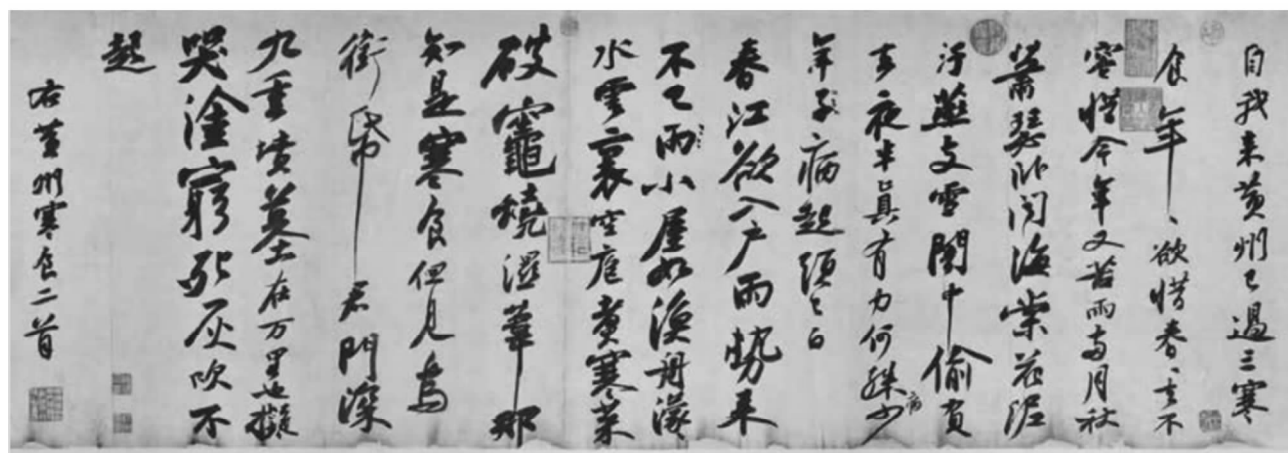 自我来黄州已過三寒
食年〻欲惜春〻去不
容惜今年又苦雨两月秋
蕭瑟卧聞海棠花泥
汙燕支雪闇中偷負
去夜半真有力何殊病少
年子病起頭已白
春江欲入户雨勢来
不已雨小屋如漁舟濛
水雲裏空庖煮寒菜
破竈燒濕葦那
知是寒食但見烏
銜帋君門深
九重墳墓在万里也擬
哭塗窮死灰吹不
起
右黄州寒食二首